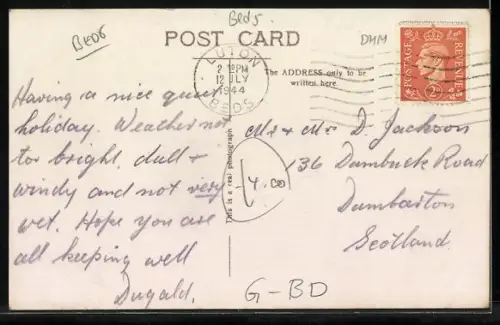 Beds
BEDS
POST CARD
DMM
LUTON
2 PM
12 JLY
1944
BEDS
POSTAGE
REVENUE
The ADDRESS only to be
written here.
Having a nice quiet
holiday. Weather not
too bright, dull &
windy and not very
wet. Hope you are
all keeping well
Dugald.
This is a real photograph
4.00
Mr & Mrs D. Jackson
136 Dumbuck Road
Dumbarton
Scotland.
G-BD